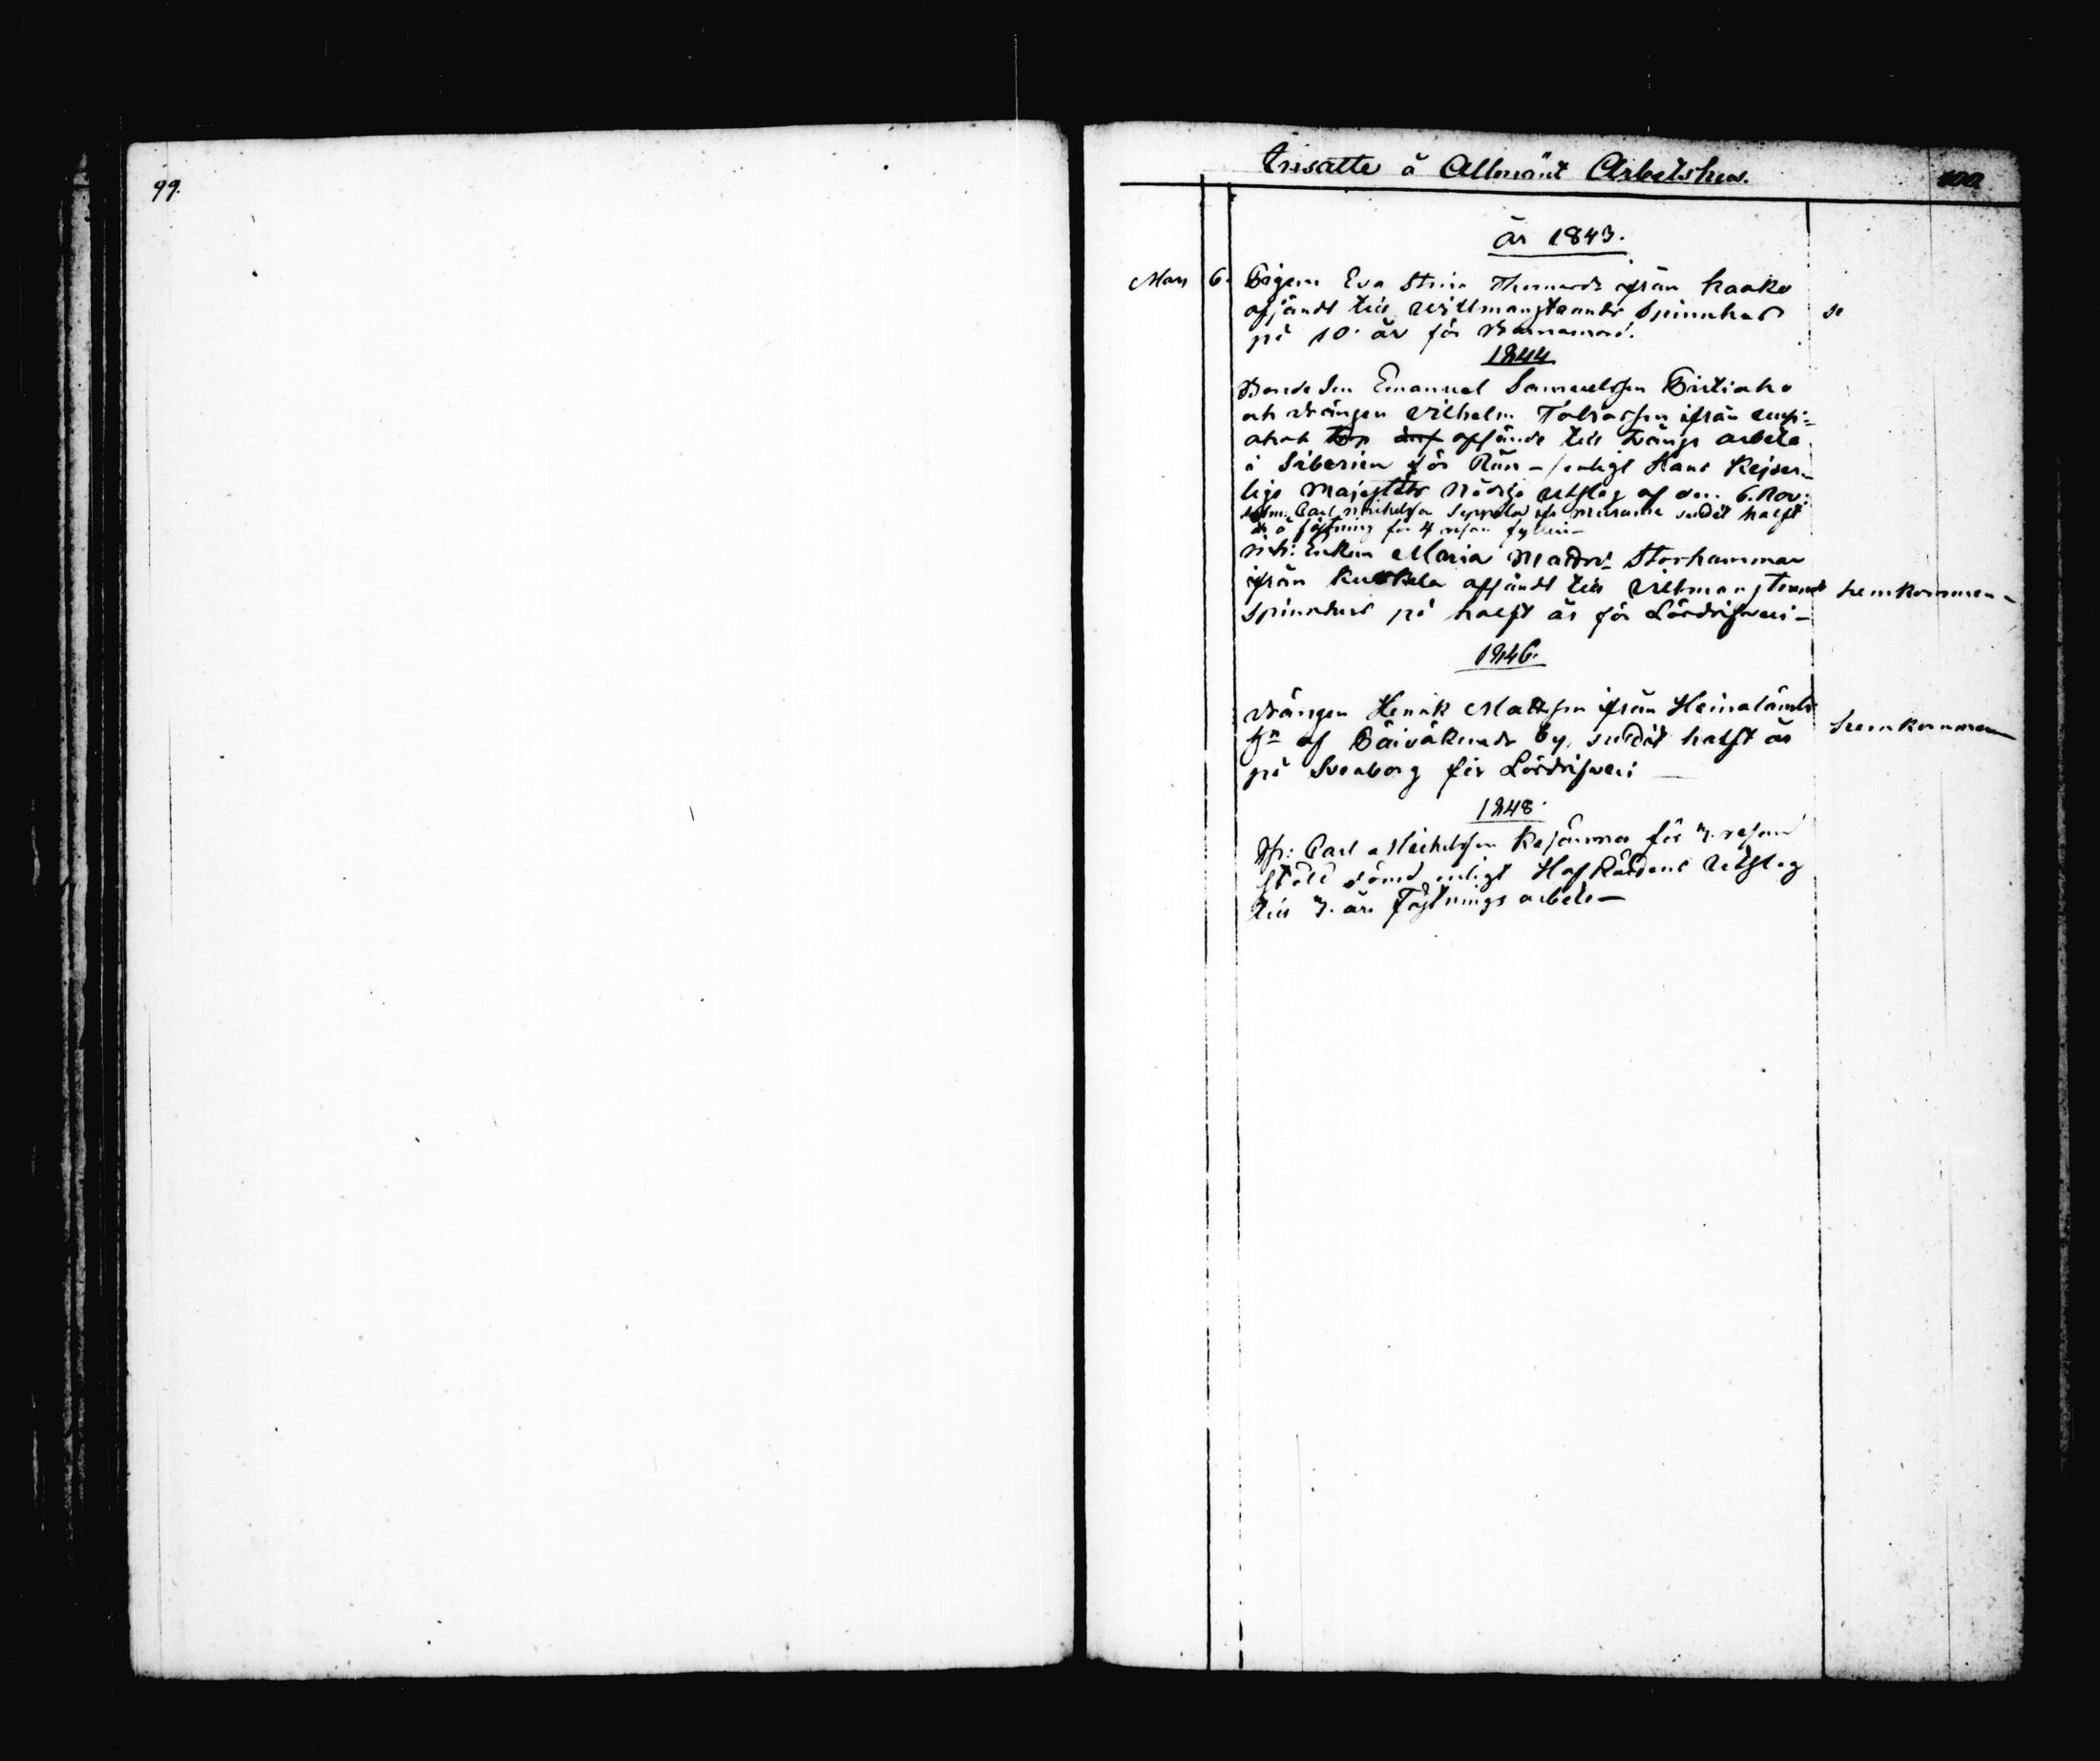 99.
Insatte å Allmänt Arbetshus.
100
år 1843.
Mars 6. Pigan Eva Stina Thomasdr ifrån Haako
afsändt till Willmanstrands Spinnhus
på 10 år för Barnamord.
1844
Bonde Son Emanuel Samuelsson
och Drängen Vilhelm Tobiasson ifrån
afsände till tvångs arbete
i Siberien för Rån - enligt Hans Kejser-
liga Majestäts Nådiga Utslag af den 6. Nov:
Carl Michelsson Seppälä suttit halft
år å fästning för 4 resan fylleri -
Enkan Maria Mattsdr Storhammar
ifrån Kuskela afsändt till Vilmanstrands
Spinnhus på halft år för Lösdrifveri -
hemkommen -
1846.
Drängen Henrik Mattsson ifrån Heinalamb
af Päiväkunda by, suttit halft år
på Sveaborg för Lösdrifveri -
hemkommen
1848.
Carl Michelsson Kajanma för 3. resan
stöld dömd enligt Hof Rättens Utslag
till 3. års Fästnings arbete -